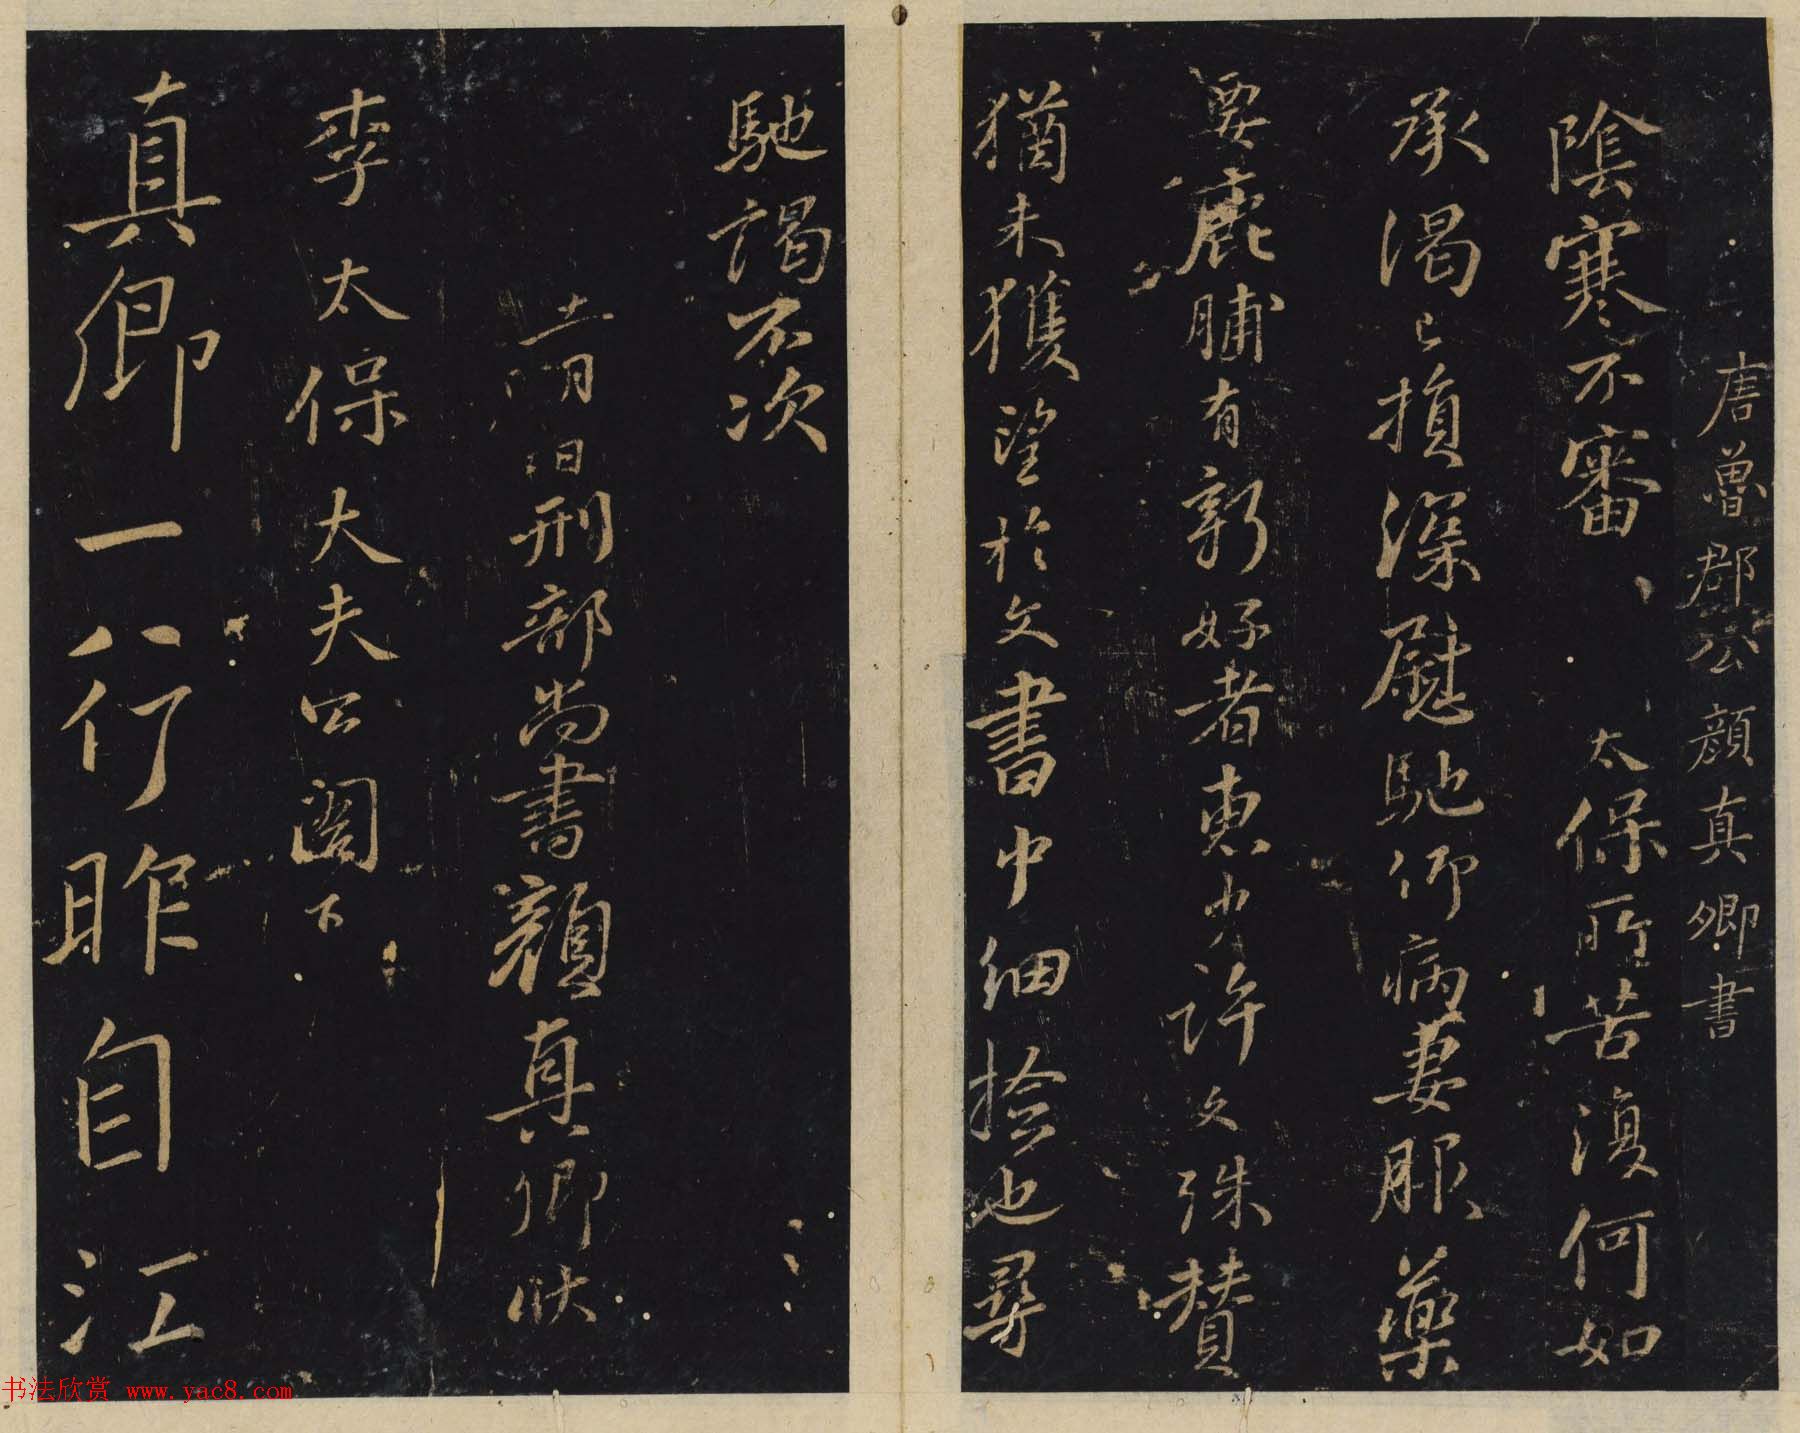 唐魯郡公顔真卿書
陰寒不審太保所苦復何如
承渴已損深慰馳仰病妻服藥
要鹿脯有新好者惠少許文殊贊
猶未獲望於文書中細撿也尋
馳謁不次
十一月日刑部尚書顔真卿狀
李太保大夫公閤下
真卿一行昨自江
书法欣赏 www.yac8.com